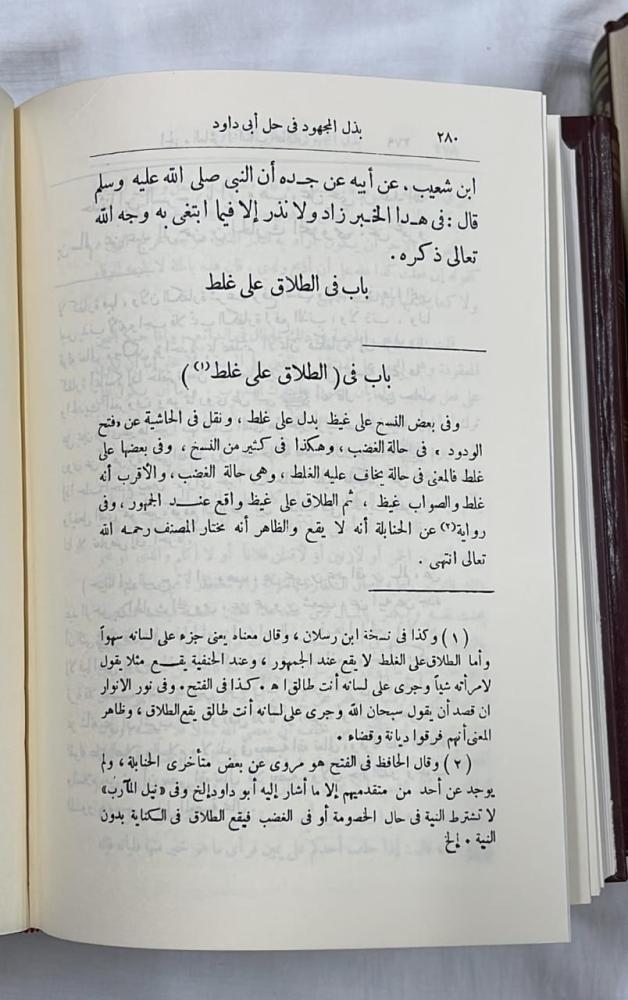 بذل المجهود فى حل أبى داود
٢٨٠
ابن شعيب . عن أبيه عن جـده أن النبى صلى الله عليه وسلم
قال : فى هـدا الخـبر زاد ولا نذر إلا فيما ابتغى به وجه الله
تعالى ذكره .
باب فى الطلاق على غلط
باب فى ( الطلاق على غلط (١) )
وفى بعض النسخ على غيظ بدل على غلط ، ونقل فى الحاشية عن «فتح
الودود » فى حالة الغضب ، وهكذا فى كثير من النسخ ، وفى بعضها على
غلط فالمعنى فى حالة يخاف عليه الغلط ، وهى حالة الغضب ، والأقرب أنه
غلط والصواب غيظ ، ثم الطلاق على غيظ واقع عنــد الجمهور ، وفى
رواية (٢) عن الحنابلة أنه لا يقع والظاهر أنه مختار المصنف رحمـه الله
تعالى انتهى .
( ١ ) وكذا فى نسخة ابن رسلان ، وقال معناه يعنى جزء على لسانه سهواً
وأما الطلاق على الغلط لا يقع عند الجمهور ، وعند الحنفية يقـــع مثلا يقول
لامرأته شيأ وجرى على لسانه أنت طالق اه . كـذا فى الفتح . وفى نور الانوار
ان قصد أن يقول سبحان الله وجرى على لسانه أنت طالق يقع الطلاق ، وظاهر
المعنى أنهم فرقوا ديانة وقضاء .
( ٢ ) وقال الحافظ فى الفتح هو مروى عن بعض متأخرى الحنابلة ، ولم
يوجد عن أحد من متقدميهم إلا ما أشار إليه أبو داود إلخ وفى «نيل المآرب»
لا تشترط النية فى حال الخصومة أو فى الغضب فيقع الطلاق فى الكناية بدون
النية . إلخ